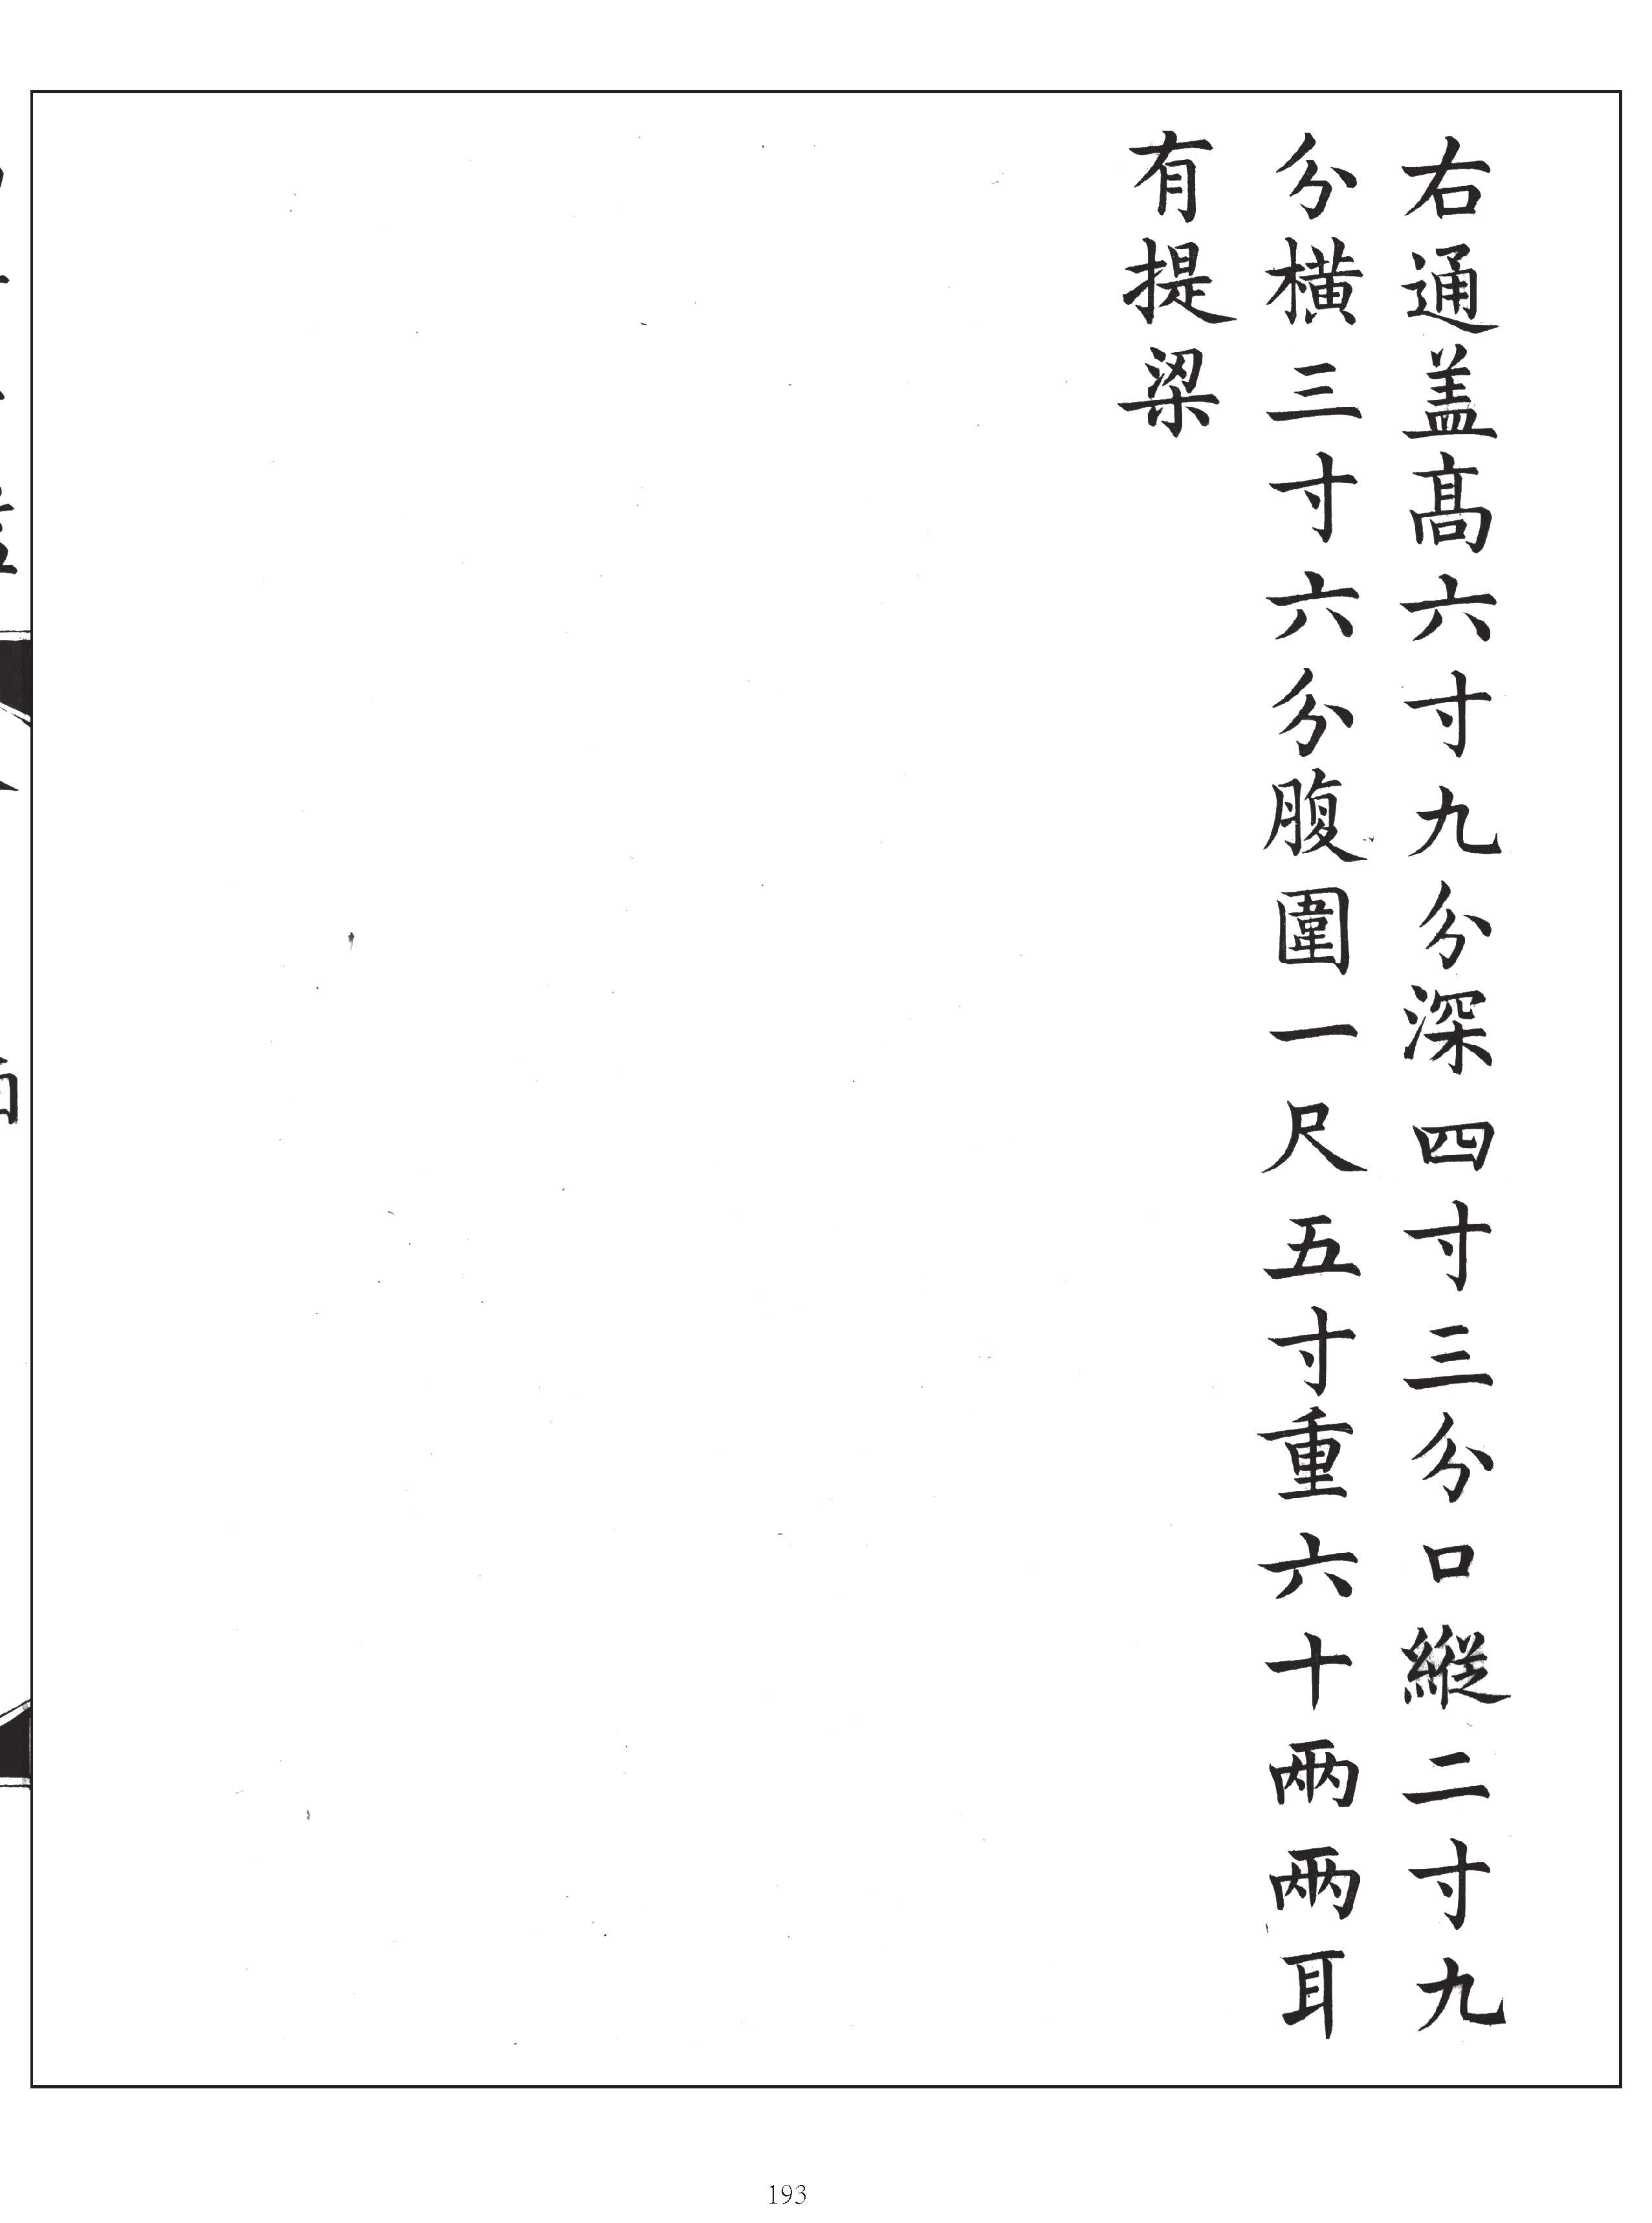 右通盖髙六寸九分深四寸三分口縱二寸九
分橫三寸六分腹圍一尺五寸重六十兩兩耳
有提梁
193